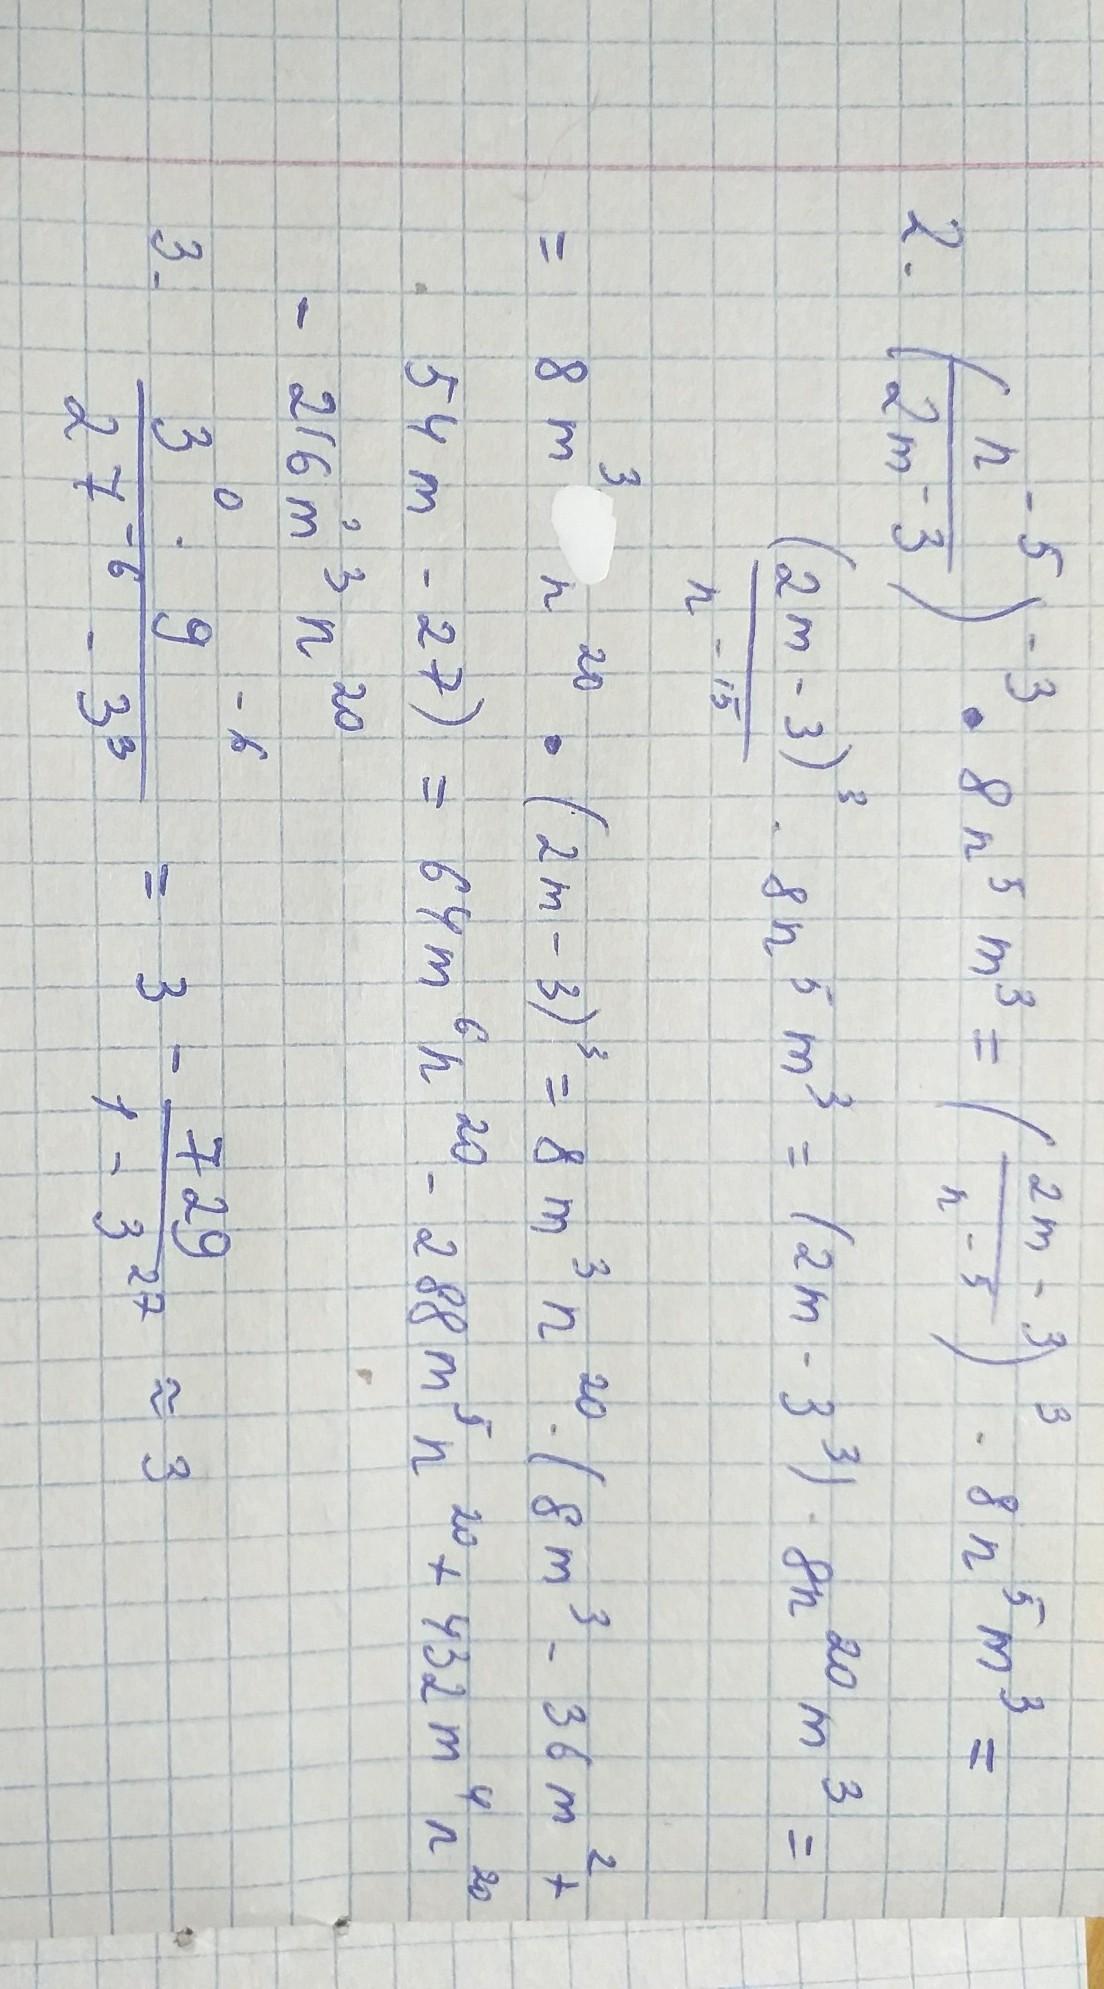 2. (n⁻⁵/2m⁻³)⁻³ • 8n⁵m³ = (2m-3/n-5)³ · 8n⁵m³ =
(2m-3)³/n⁻¹⁵ · 8n⁵m³ = (2m-3³) · 8n²⁰m³ =
= 8m³ n²⁰ • (2m-3)³ = 8m³n²⁰ · (8m³ - 36m² +
54m - 27) = 64m⁶n²⁰ - 288m⁵n²⁰ + 432m⁴n²⁰
- 216m³n²⁰
3. 3⁰ · 9⁻⁶/27⁻⁶ - 3³ = 3 - 729/1 - 3²⁷ ≈ 3